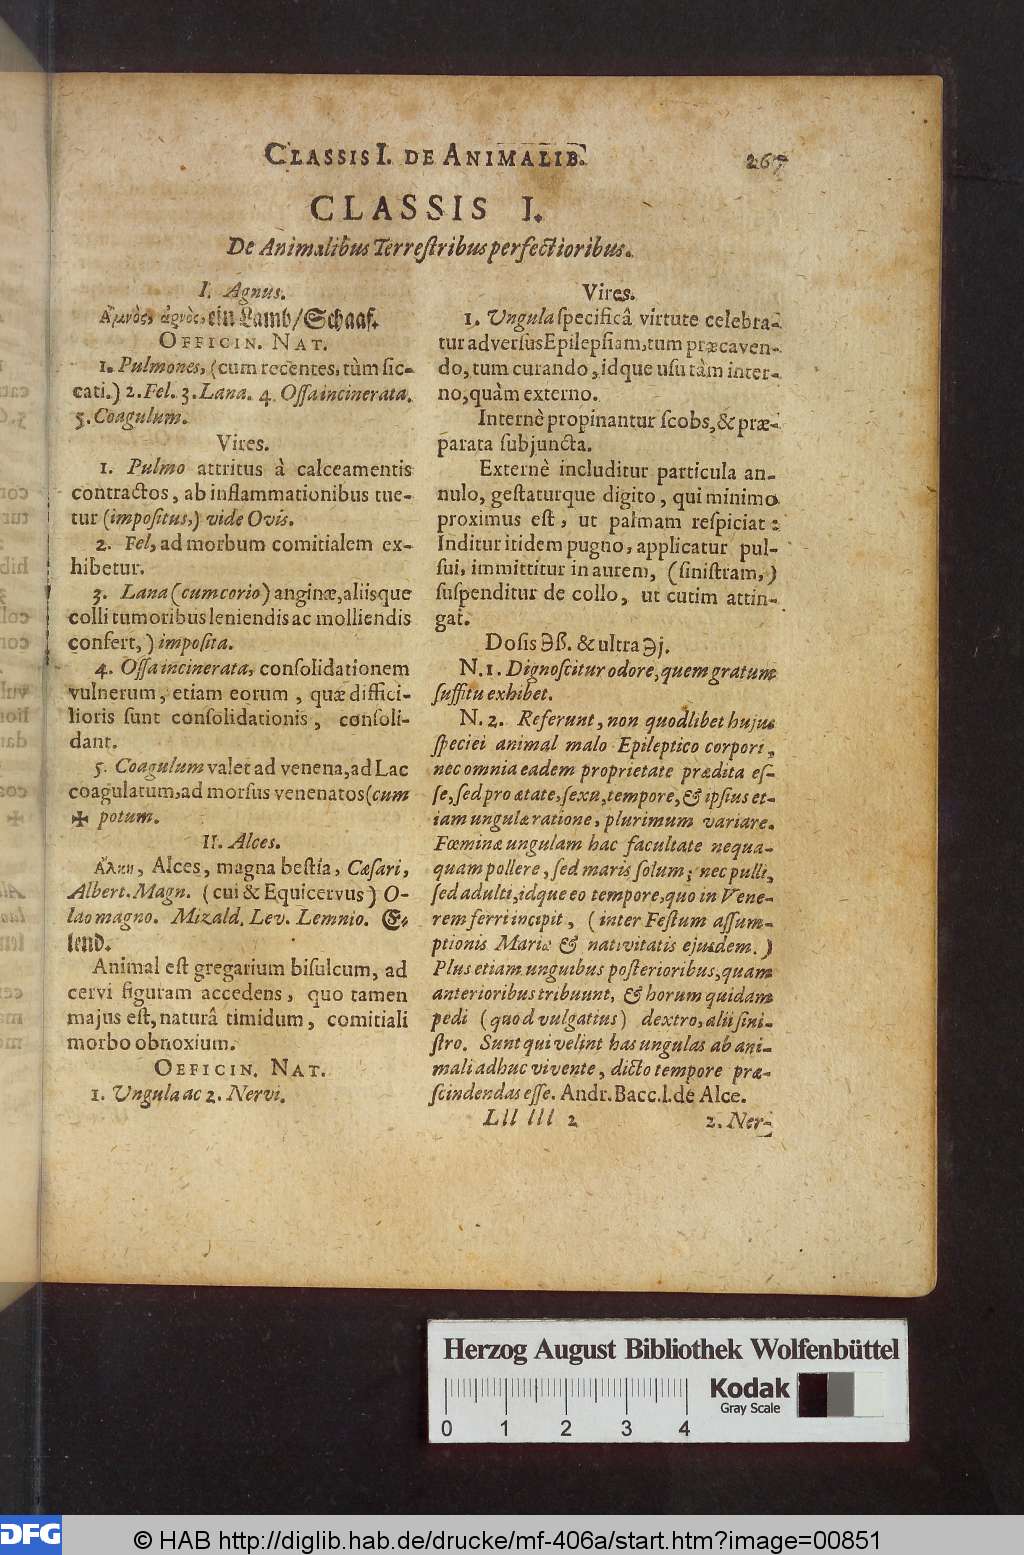 CLASSIS I. DE ANIMALIB. 267
CLASSIS I.
De Animalibus Terreſtribus perfectioribus.
I. Agnus.
Ἀμνὸς, ἀρνὸς, ein Lamb/Schaaf.
OFFICIN. NAT.
1. Pulmones, (cum recentes, tùm ſic-
cati.) 2. Fel. 3. Lana. 4. Oſſa incinerata.
5. Coagulum.
Vires.
1. Pulmo attritus à calceamentis
contractos, ab inflammationibus tue-
tur (impoſitus,) vide Ovis.
2. Fel, ad morbum comitialem ex-
hibetur.
3. Lana (cum corio) anginæ, aliisque
colli tumoribus leniendis ac molliendis
confert,) impoſita.
4. Oſſa incinerata, conſolidationem
vulnerum, etiam eorum, quæ diffici-
lioris ſunt conſolidationis, conſoli-
dant.
5. Coagulum valet ad venena, ad Lac
coagulatum, ad morſus venenatos (cum
✠ potum.
II. Alces.
Ἄλκη, Alces, magna beſtia, Cæſari,
Albert. Magn. (cui & Equicervus) O-
lao magno. Mizald. Lev. Lemnio. E-
lend.
Animal eſt gregarium biſulcum, ad
cervi figuram accedens, quo tamen
majus eſt, naturâ timidum, comitiali
morbo obnoxium.
OFFICIN. NAT.
1. Ungula ac 2. Nervi.
Vires.
1. Ungula ſpecificâ virtute celebra-
tur adverſùs Epilepſiam, tum præcaven-
do, tum curando, idque uſu tàm inter-
no, quàm externo.
Internè propinantur ſcobs, & præ-
parata ſubjuncta.
Externè includitur particula an-
nulo, geſtaturque digito, qui minimo
proximus eſt, ut palmam reſpiciat:
Inditur itidem pugno, applicatur pul-
ſui, immittitur in aurem, (ſiniſtram,)
ſuſpenditur de collo, ut cutim attin-
gat.
Doſis ℈ß. & ultra ℈j.
N. 1. Dignoſcitur odore, quem gratum
ſuffitu exhibet.
N. 2. Referunt, non quodlibet hujus
ſpeciei animal malo Epileptico corporì,
nec omnia eadem proprietate prædita eſ-
ſe, ſed pro ætate, ſexu, tempore, & ipſius et-
iam ungulæ ratione, plurimum variare.
Fœminæ ungulam hac facultate nequa-
quam pollere, ſed maris ſolum; nec pulli,
ſed adulti, idque eo tempore, quo in Vene-
rem ferri incipit, (inter Feſtum aſſum-
ptionis Mariæ & nativitatis ejusdem.)
Plus etiam unguibus poſterioribus, quam
anterioribus tribuunt, & horum quidam
pedi (quod vulgatius) dextro, alii ſini-
ſtro. Sunt qui velint has ungulas ab ani-
mali adhuc vivente, dicto tempore præ-
ſcindendas eſſe. Andr. Bacc. l. de Alce.
Lll lll 2 2. Ner-
Herzog August Bibliothek Wolfenbüttel
Kodak
Gray Scale
0 1 2 3 4
DFG
© HAB http://diglib.hab.de/drucke/mf-406a/start.htm?image=00851